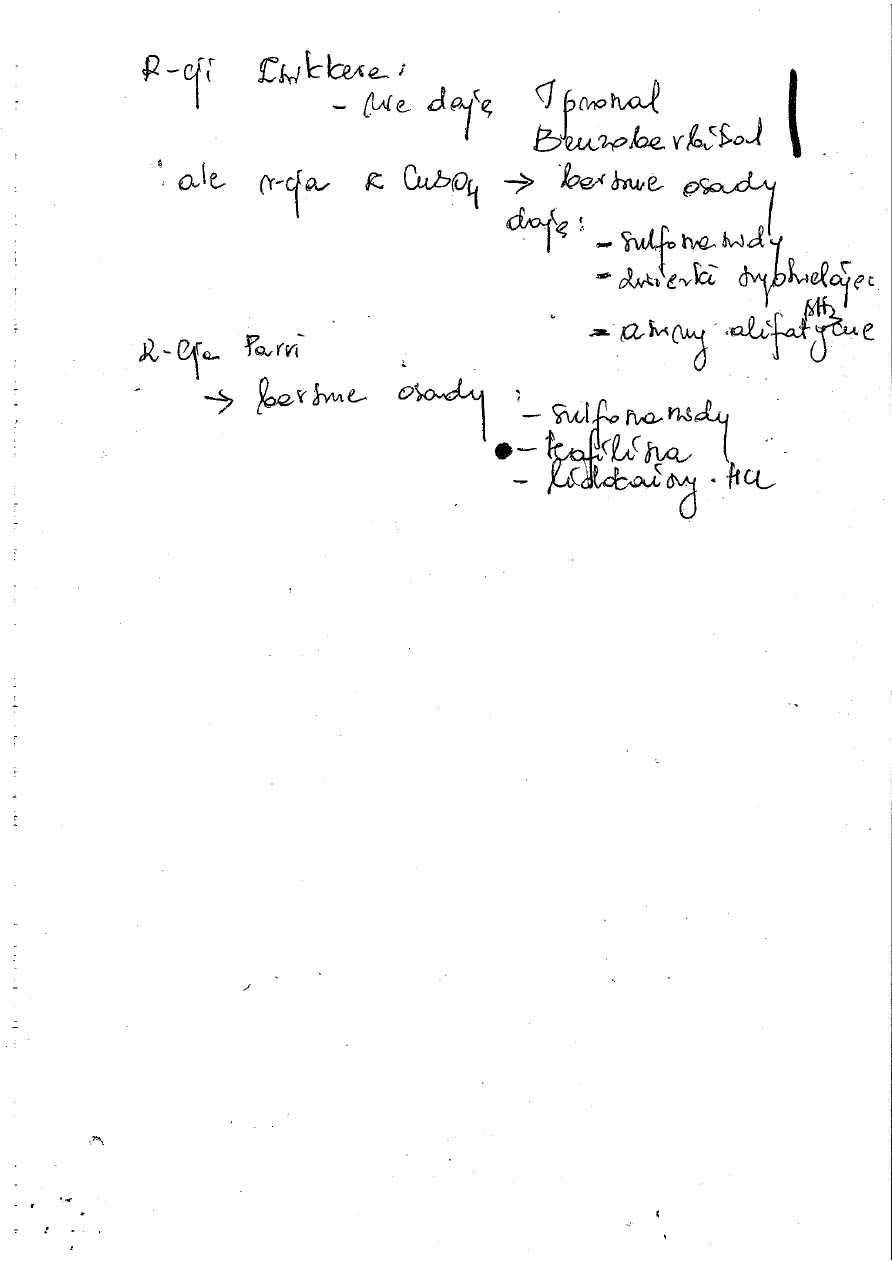 R-cji Zwikkera:
- nie daje Ipronal
Benzobarbital
ale r-cja z CuSO4 → barwne osady
daję:
- sulfonamidy
- związki wydzielające NH3
- aminy alifatyczne
R-cja Parri
→ barwne osady:
- sulfonamidy
- teofilina
- lidokainy · HCl